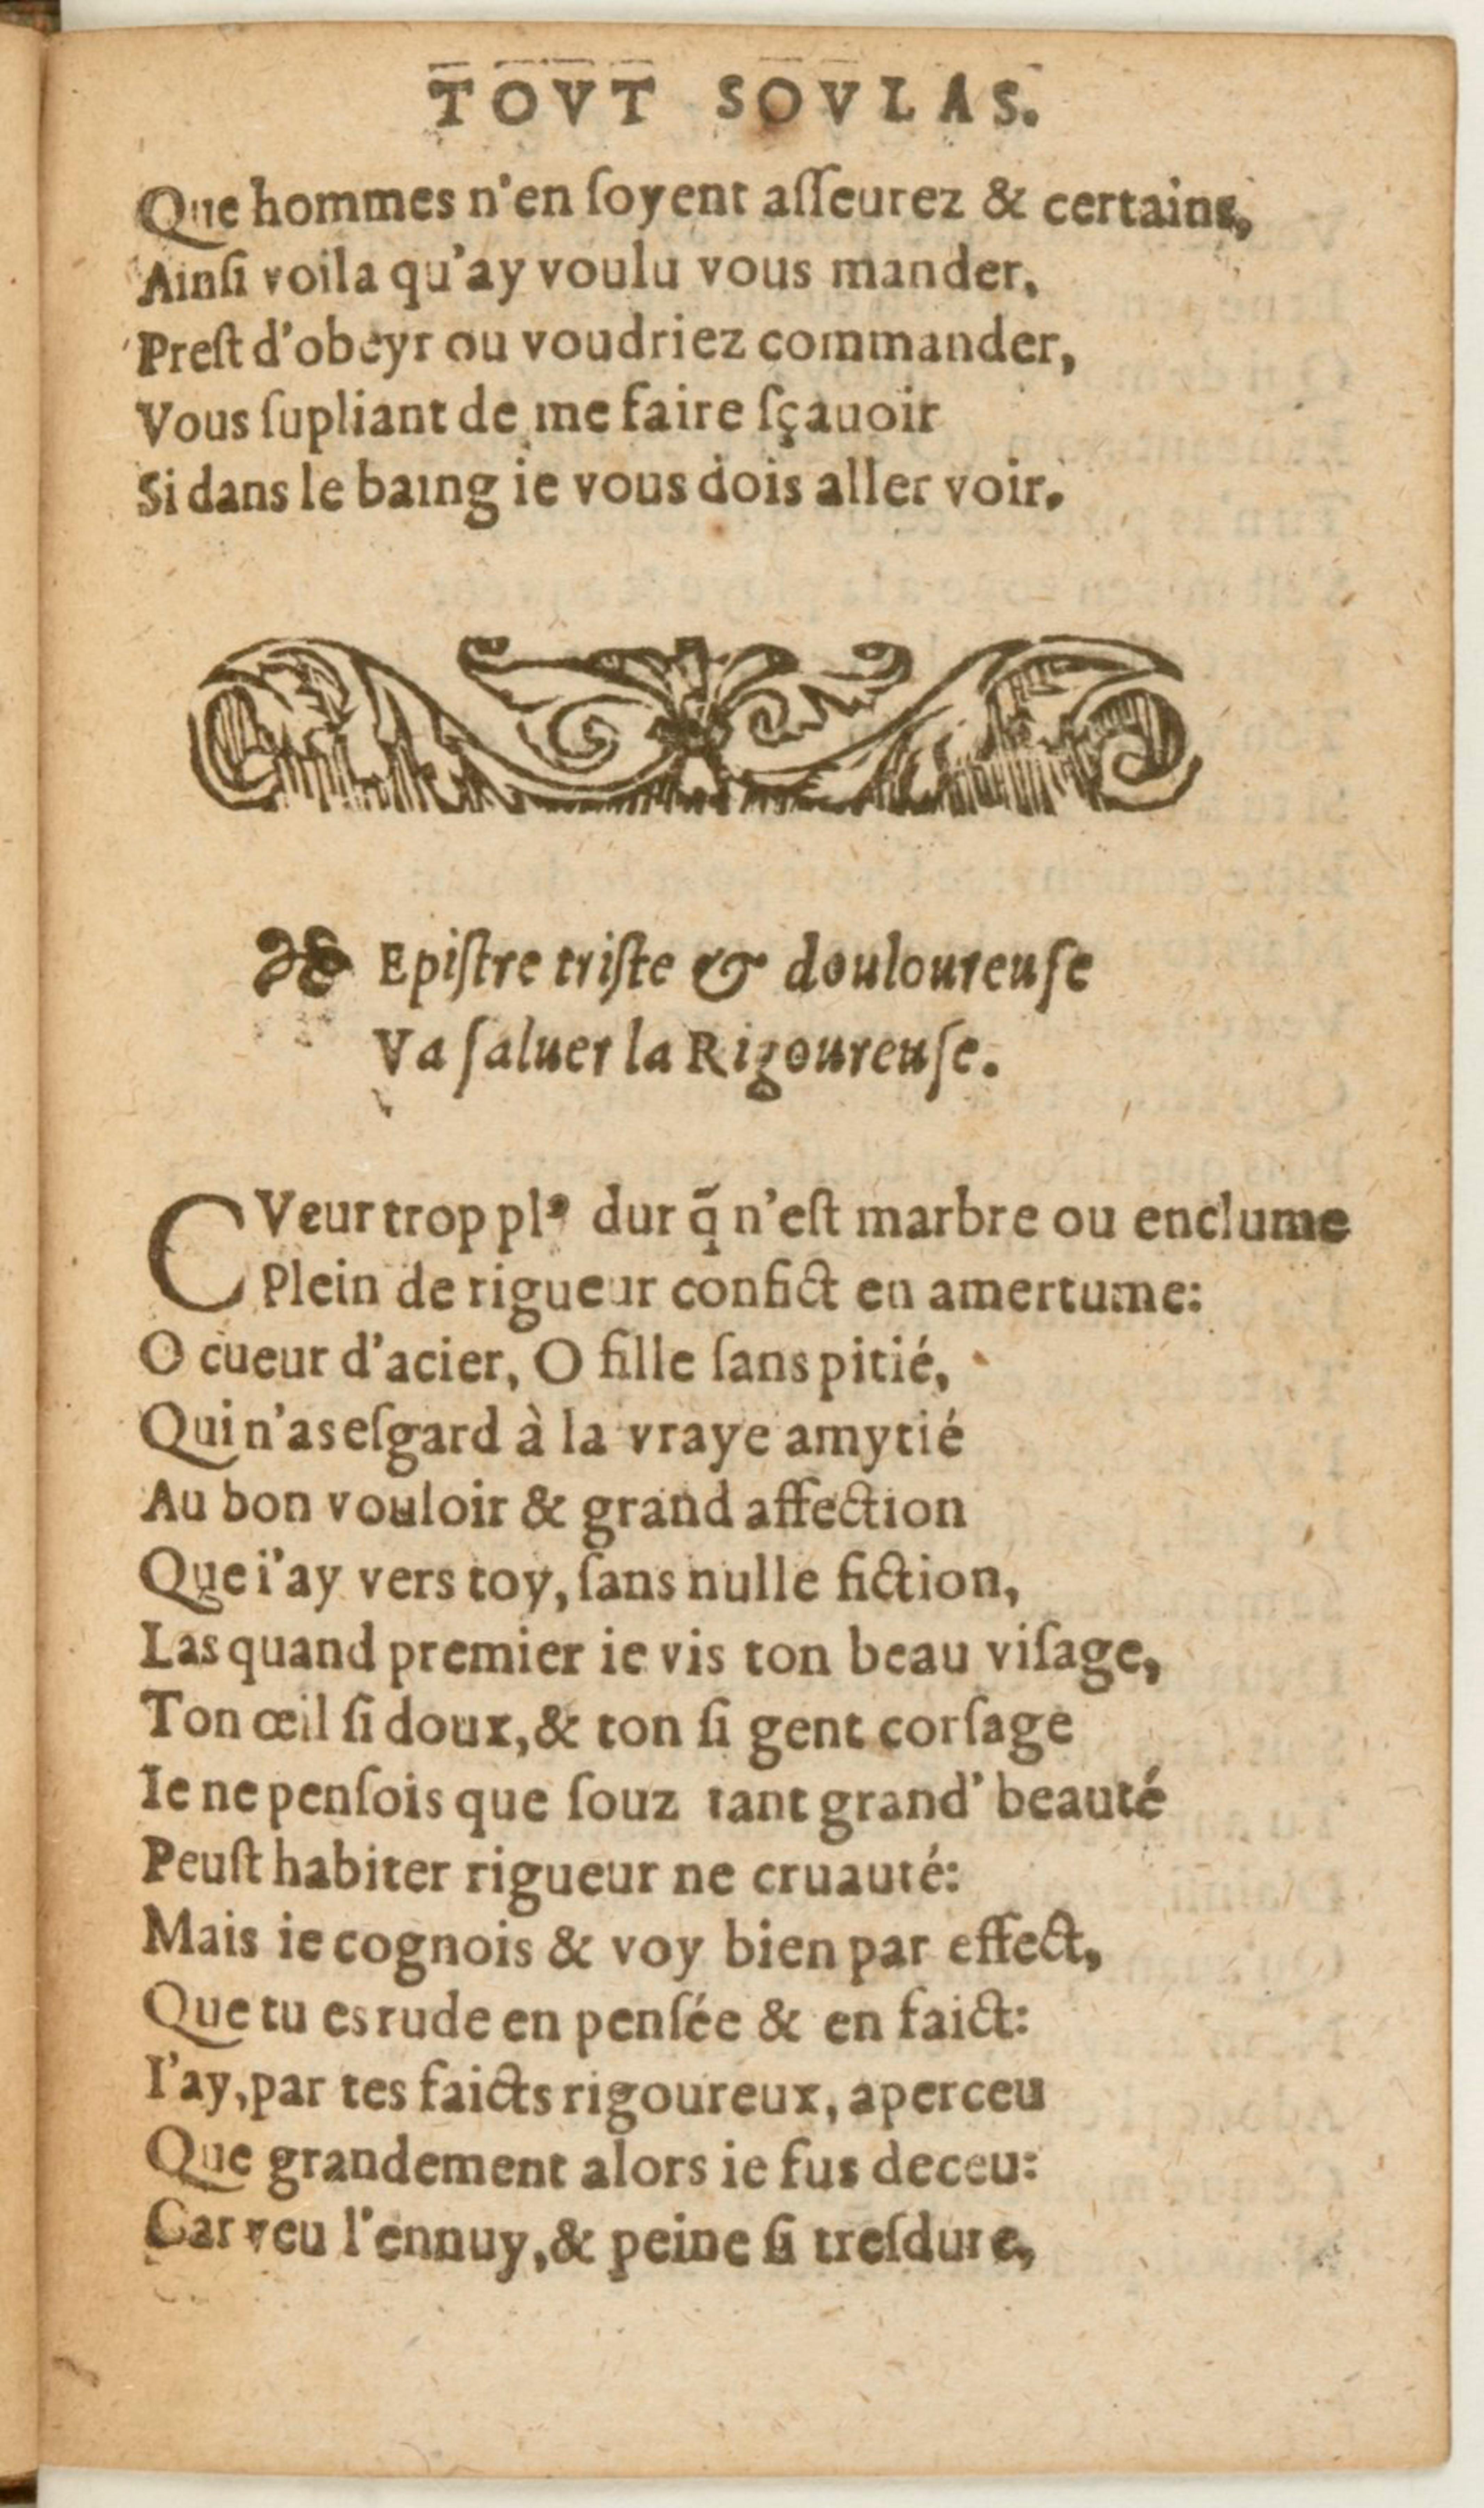 TOVT SOVLAS.
Que hommes n'en ſoyent aſſeurez & certains,
Ainſi voila qu'ay voulu vous mander.
Preſt d'obeyr ou voudriez commander,
Vous ſupliant de me faire ſçauoir
Si dans le baing ie vous dois aller voir.
❧ Epiſtre triſte & douloureuſe
Va ſaluer la Rigoureuſe.
CVeur trop plꝰ dur q̃ n'eſt marbre ou enclume
Plein de rigueur confict en amertume:
O cueur d'acier, O fille ſans pitié,
Qui n'as eſgard à la vraye amytié
Au bon vouloir & grand affection
Que i'ay vers toy, ſans nulle fiction,
Las quand premier ie vis ton beau viſage,
Ton œil ſi doux, & ton ſi gent corſage
Ie ne penſois que ſouz tant grand' beauté
Peuſt habiter rigueur ne cruauté:
Mais ie cognois & voy bien par effect,
Que tu es rude en penſée & en faict:
I'ay, par tes faicts rigoureux, aperceu
Que grandement alors ie fus deceu:
Car veu l'ennuy, & peine ſi treſdure,